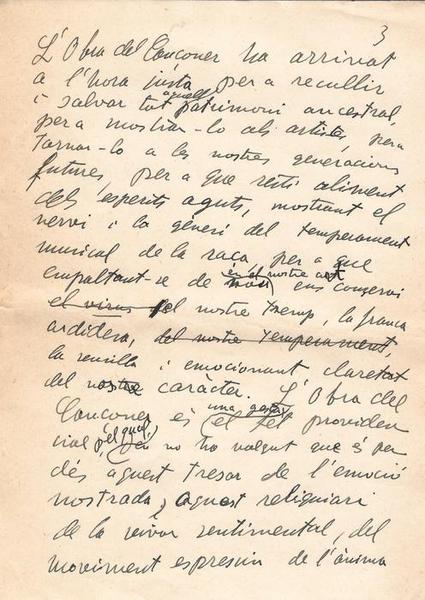 3
L'Obra del Cançoner ha arrivat
a l'hora justa per a recullir
i salvar tot aquell patrimoni ancestral,
per a mostrar-lo als artistes, per a
tornar-lo a les nostres generacions
futures, per a que resti aliment
dels esperits aguts, mostrant el
nervi i la gèneri del temperament
musical de la raça, per a que
empaltant-se de nou en el nostre art ens conservi
el virus del nostre tremp, la franca
ardidesa, del nostre temperament,
la senzilla i emocionant claretat
del nostre caràcter. L'Obra del
Cançoner és una gesta el fet providen
cial, pel qual no ha volgut que és per
dés aquest tresor de l'emoció
mostrada, aquest reliquiari
de la saviesa sentimental, del
moviment espressiu de l'ànima